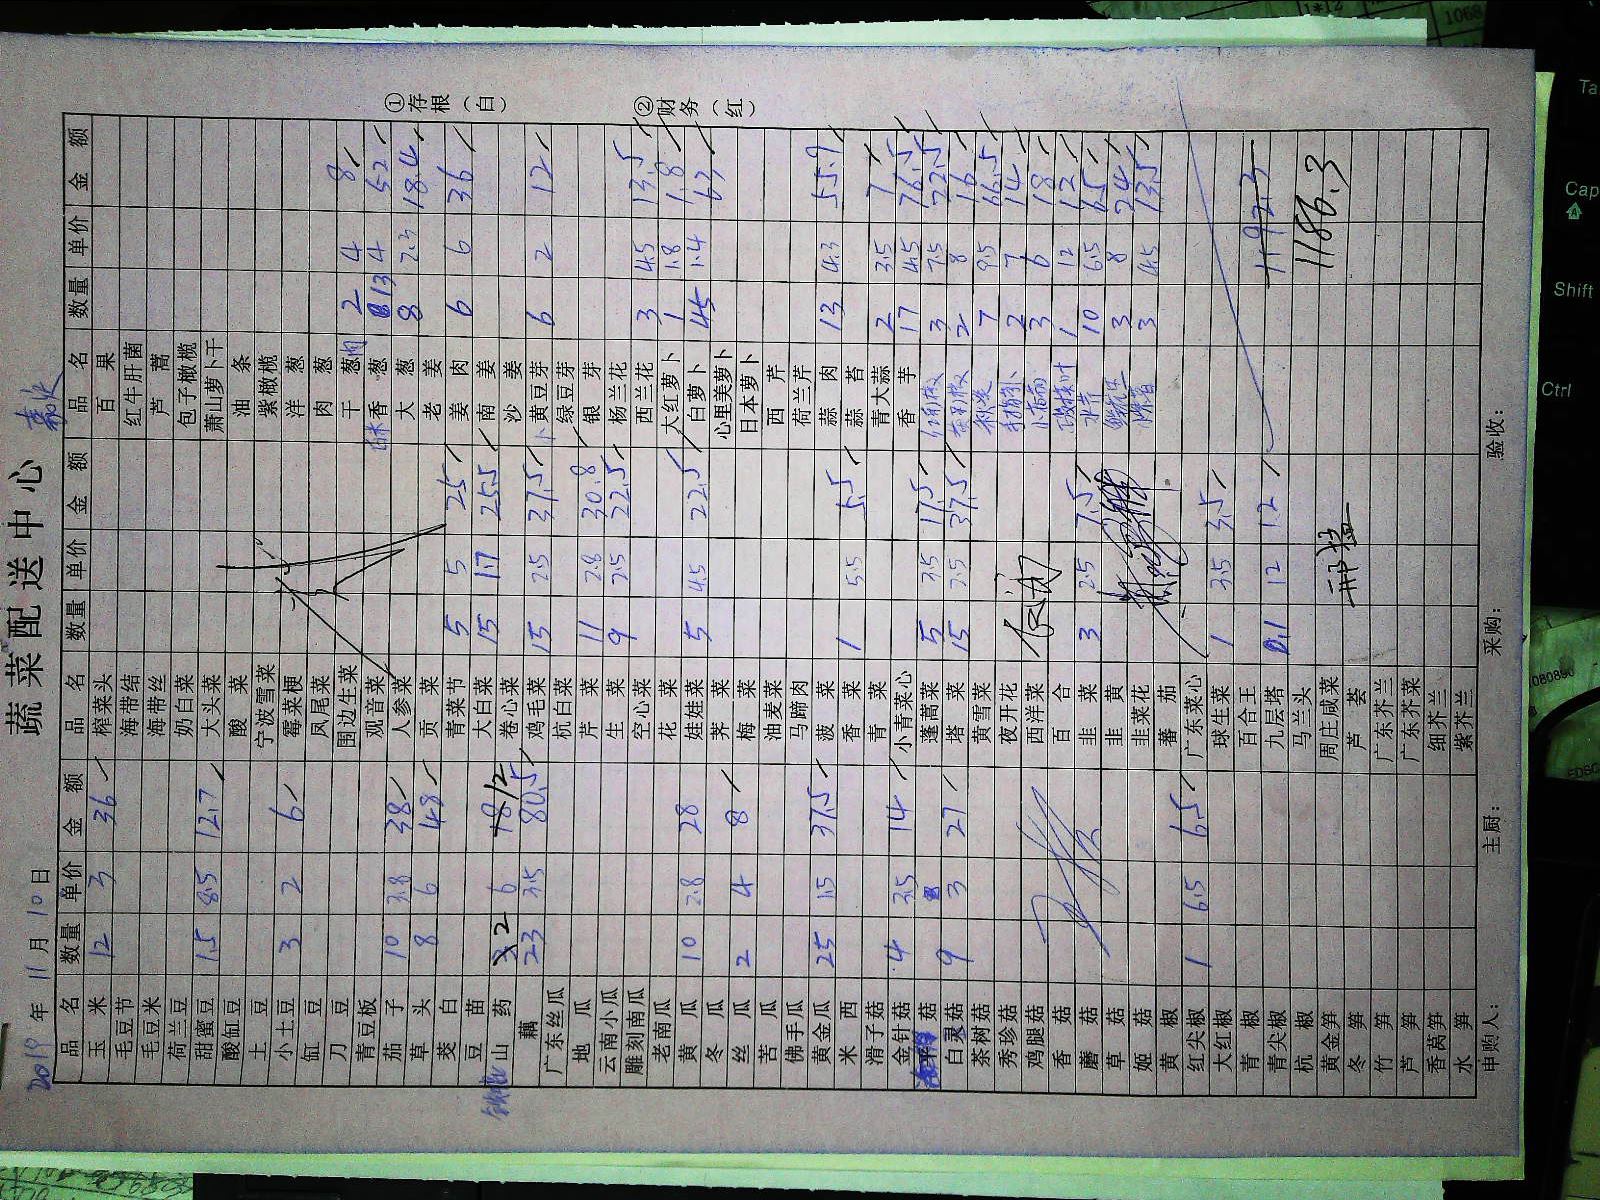 蔬菜配送中心
2019 年 11 月 10 日
品名 数量 单价 金额 品名 数量 单价 金额 品名 数量 单价 金额
玉米 12 3 36 榨菜头 百果
毛豆节 海带结 红牛肝菌
毛豆米 海带丝 芦蒿
荷兰豆 奶白菜 包子橄榄
甜蜜豆 1.5 8.5 12.7 大头菜 萧山萝卜干
酸缸豆 酸菜 油条
土豆 宁波雪菜 紫橄榄
小土豆 3 2 6 霉菜梗 洋葱
缸豆 凤尾菜 肉葱
刀豆 围边生菜 干葱肉 2 4 8
青豆板 观音菜 香葱 13 4 52
茄子 10 3.8 38 人参菜 大葱 8 2.3 18.4
草头 8 6 48 贡菜 老姜
茭白 青菜节 5 5 25 姜肉 6 6 36
豆苗 大白菜 15 1.7 25.5 南姜
铁棍山药 2 6 12 卷心菜 沙姜
藕 23 3.5 80.5 鸡毛菜 15 2.5 37.5 小黄豆芽 6 2 12
广东丝瓜 杭白菜 绿豆芽
地瓜 芹菜 11 2.8 30.8 银芽
云南小瓜 生菜 9 2.5 22.5 杨兰花
雕刻南瓜 空心菜 西兰花 3 4.5 13.5
老南瓜 花菜 大红萝卜 1 1.8 1.8
黄瓜 10 2.8 28 娃娃菜 5 4.5 22.5 白萝卜 45 1.4 63
冬瓜 荠菜 心里美萝卜
丝瓜 2 4 8 梅菜 日本萝卜
苦瓜 油麦菜 西芹
佛手瓜 马蹄肉 荷兰芹
黄金瓜 25 1.5 37.5 菠菜 蒜肉 13 4.3 55.9
米西 香菜 1 5.5 5.5 蒜苔
滑子菇 青菜 青大蒜 2 3.5 7
金针菇 4 3.5 14 小青菜心 香芋 17 4.5 76.5
菇 蓬蒿菜 5 3.5 17.5 红角椒 3 7.5 22.5
白灵菇 9 3 27 塔菜 15 2.5 37.5 黄圆椒 2 8 16
茶树菇 黄雪菜 秋葵 7 9.5 66.5
秀珍菇 夜开花 手指萝卜 2 7 14
鸡腿菇 西洋菜 小南瓜 3 6 18
香菇 百合 1 12 12
蘑菇 韭菜 3 2.5 7.5 10 6.5 65
草菇 韭黄 3 8 24
姬菇 韭菜花 3 4.5 13.5
黄椒 蕃茄
红尖椒 1 6.5 6.5 广东菜心
大红椒 球生菜 1 3.5 3.5
青椒 百合王 1192.3
青尖椒 九层塔 0.1 12 12
杭椒 马兰头 1186.3
黄金笋 周庄咸菜
冬笋 芦荟
竹笋 广东芥兰
芦笋 广东芥菜
香莴笋 细芥兰
水笋 紫芥兰
申购人： 主厨： 采购： 验收：
①存根（白）
②财务（红）
Tab
Cap
Shift
Ctrl